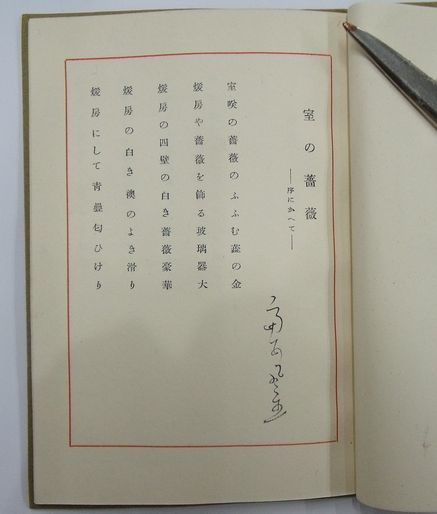 室の薔薇
――序にかへて――
室咲の薔薇のふふむ蕋の金
煖房や薔薇を飾る玻璃器大
煖房の四壁の白き薔薇豪華
煖房の白き襖のよき滑り
煖房にして青疊匂ひけり